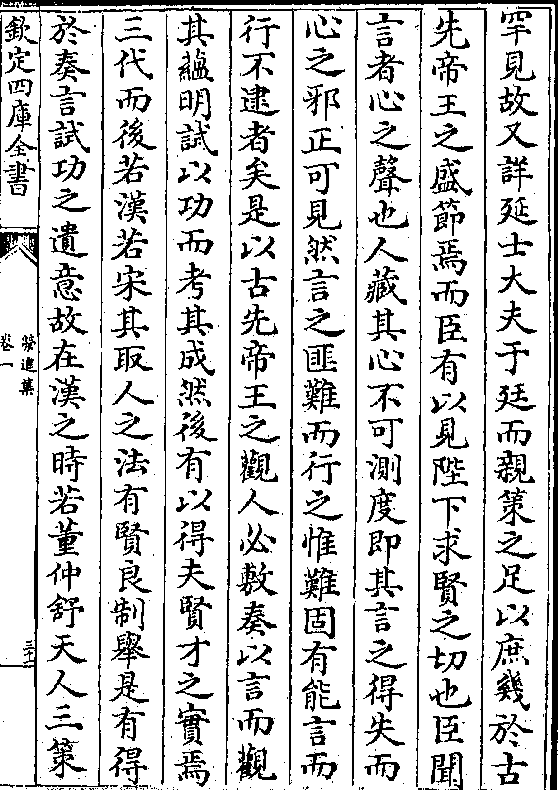 罕見故又詳延士大夫于廷而親策之足以庶幾於古
先帝王之盛節焉而臣有以見陛下求賢之切也臣聞
言者心之聲也人藏其心不可測度即其言之得失而
心之邪正可見然言之匪難而行之惟難固有能言而
行不逮者矣是以古先帝王之觀人必敷奏以言而觀
其蘊明試以功而考其成然後有以得夫賢才之實焉
三代而後若漢若宋其取人之法有賢良制舉是有得
於奏言試功之遺意故在漢之時若董仲舒天人三策
欽定四庫全書
卷一